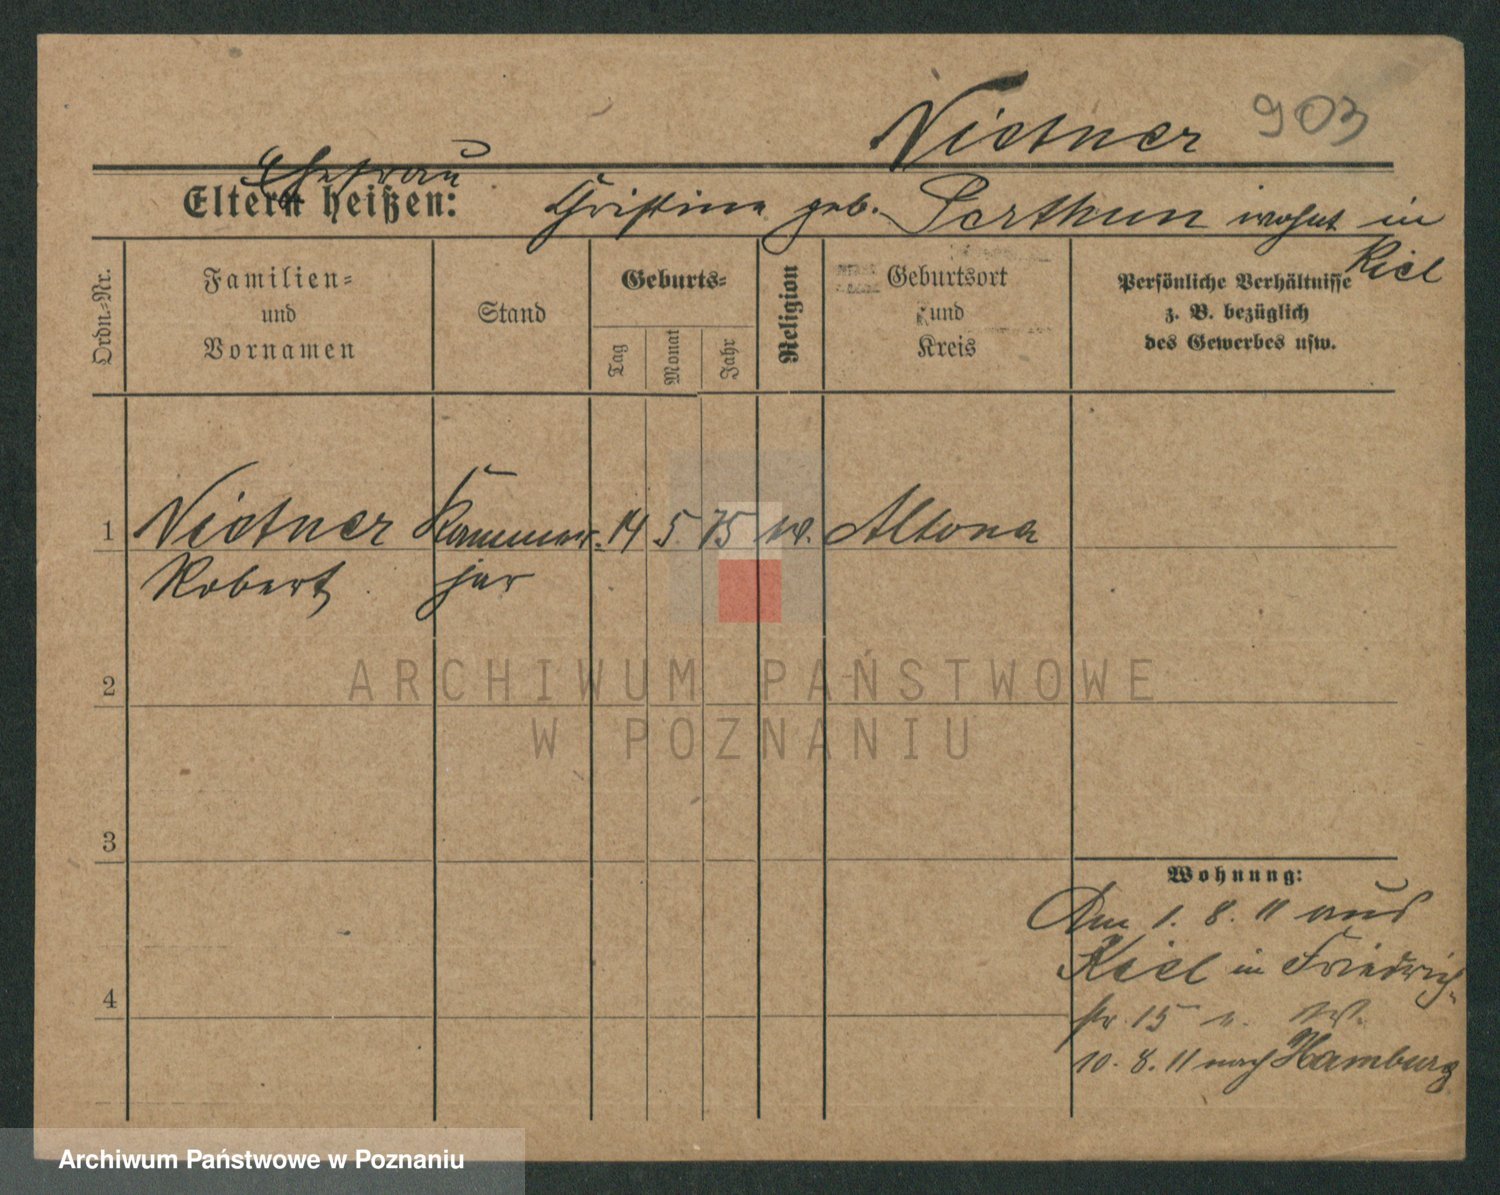 Nietner 903
Ehefrau
Eltern heißen: Christina geb. Perthun wohnt in
Kiel
Ordn.-Nr.
Familien-
und
Vornamen
Stand
Geburts-
Tag
Monat
Jahr
Religion
Geburtsort
und
Kreis
Persönliche Verhältnisse
z. B. bezüglich
des Gewerbes usw.
1 Nietner Kammer- 14 5 75 Altona
Robert jäger
2
ARCHIWUM PAŃSTWOWE
W POZNANIU
3
Wohnung:
Am 1. 8. 11 aus
Kiel in Friedrich-
str. 15 u.
4
10. 8. 11 nach Hamburg
Archiwum Państwowe w Poznaniu